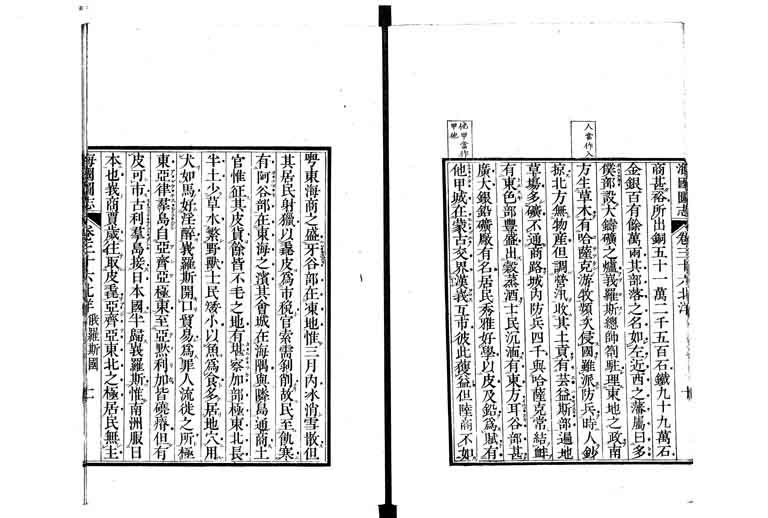 海國圖志 卷三十六 北洋 十
商甚裕所出銅五十一萬二千五百石鐵九十九萬石
金銀百有餘萬兩其部落之名如左近西之藩屬曰多
僕部設大鑄礦之爐峩羅斯總帥劄駐理東地之政南
人當作入
方生草木有哈薩克游牧類攵侵國雖派防兵時人鈔
掠北方無物產但調營汛收其土貢有芸益斯部遍地
草塲多礦不通商路城內防兵四千與哈薩克常結衅
有東色部豐盛出穀蒸酒士民沉湎有東方耳谷部甚
廣大銀鉛礦廠有名居民秀雅好學以皮及鉛爲賦有
他甲當作
甲他
他甲城在蒙古交界漢峩互市彼此獲益但陸商不如
粵東海商之盛牙谷部在東地惟三月內氷消雪散但
其居民射獵以毳皮爲市稅官索需剝削故民至飢寒
有阿谷部在東海之濱其會城在海隅與縢島通商土
官惟征其皮貨餘皆不毛之地有堪察加部極東北長
半土少草水繁野獸土民矮小以魚爲食多居地穴用
犬如馬好淫醉峩羅斯開口貿易爲罪人流徙之所極
東亞律羣島自亞齊亞極東至亞默利加皆磽瘠但有
皮可市古利羣島接日本國半歸峩羅斯惟南洲服日
本也峩商賈歲往取皮毳亞齊亞東北之極居民無主
海國圖志 卷三十六 北洋 俄羅斯國 十一